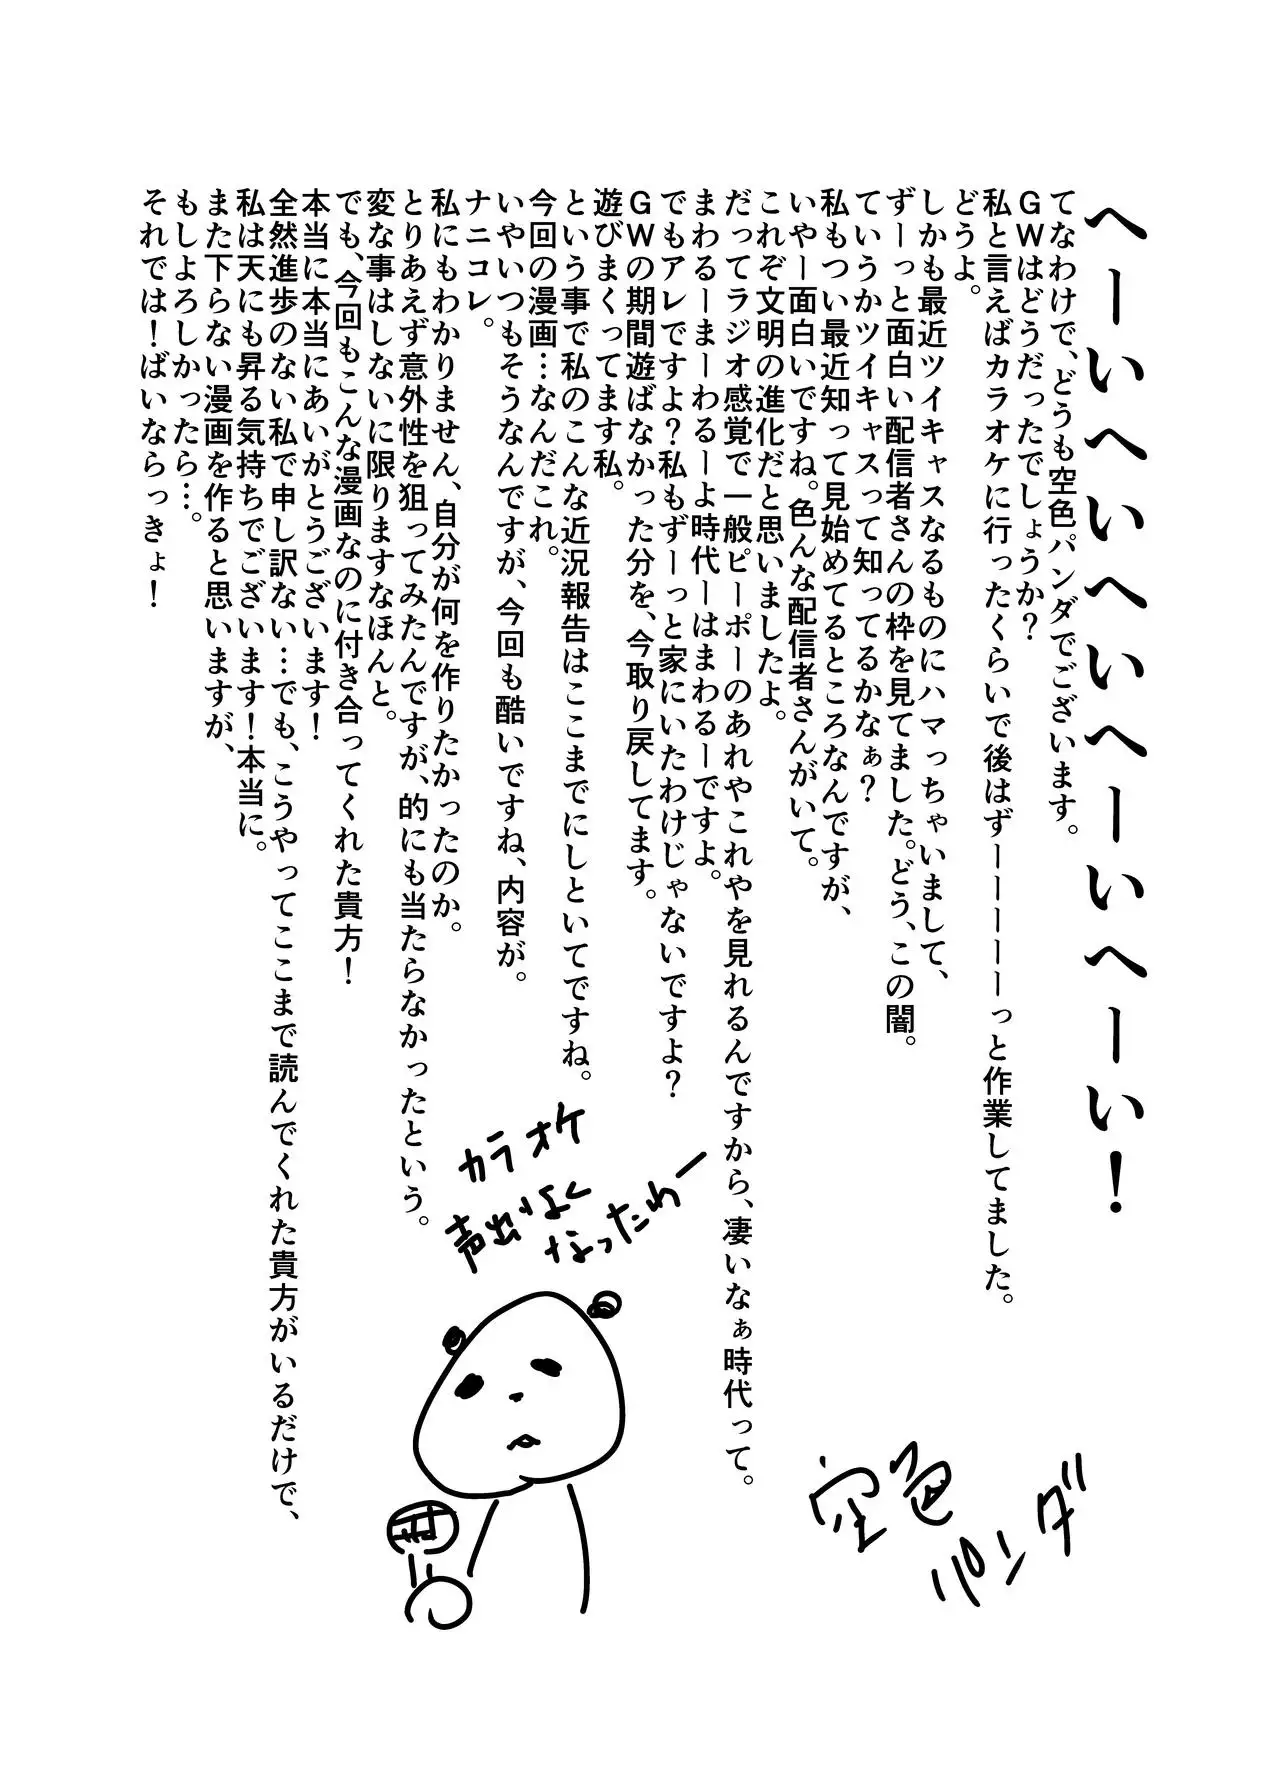 へーいへいへいへーいへーい！
てなわけで、どうも空色パンダでございます。
ＧＷはどうだったでしょうか？
私と言えばカラオケに行ったくらいで後はずーーーーーっと作業してました。
どうよ。
しかも最近ツイキャスなるものにハマっちゃいまして、
ずーっと面白い配信者さんの枠を見てました。どう、この闇。
ていうかツイキャスって知ってるかなぁ？
私もつい最近知って見始めてるところなんですが、
いやー面白いですね。色んな配信者さんがいて。
これぞ文明の進化だと思いましたよ。
だってラジオ感覚で一般ピーポーのあれやこれやを見れるんですから、凄いなぁ時代って。
まわるーまーわるーよ時代ーはまわるーですよ。
でもアレですよ？私もずーっと家にいたわけじゃないですよ？
ＧＷの期間遊ばなかった分を、今取り戻してます。
遊びまくってます私。
という事で私のこんな近況報告はここまでにしといてですね。
今回の漫画…なんだこれ。
いやいつもそうなんですが、今回も酷いですね、内容が。
ナニコレ。
私にもわかりません、自分が何を作りたかったのか。
とりあえず意外性を狙ってみたんですが、的にも当たらなかったという。
変な事はしないに限りますなほんと。
でも、今回もこんな漫画なのに付き合ってくれた貴方！
本当に本当にあいがとうございます！
全然進歩のない私で申し訳ない…でも、こうやってここまで読んでくれた貴方がいるだけで、
私は天にも昇る気持ちでございます！本当に。
また下らない漫画を作ると思いますが、
もしよろしかったら…。
それでは！ばいならっきょ！
カラオケ
声出なく
なったわー
空色
パンダ